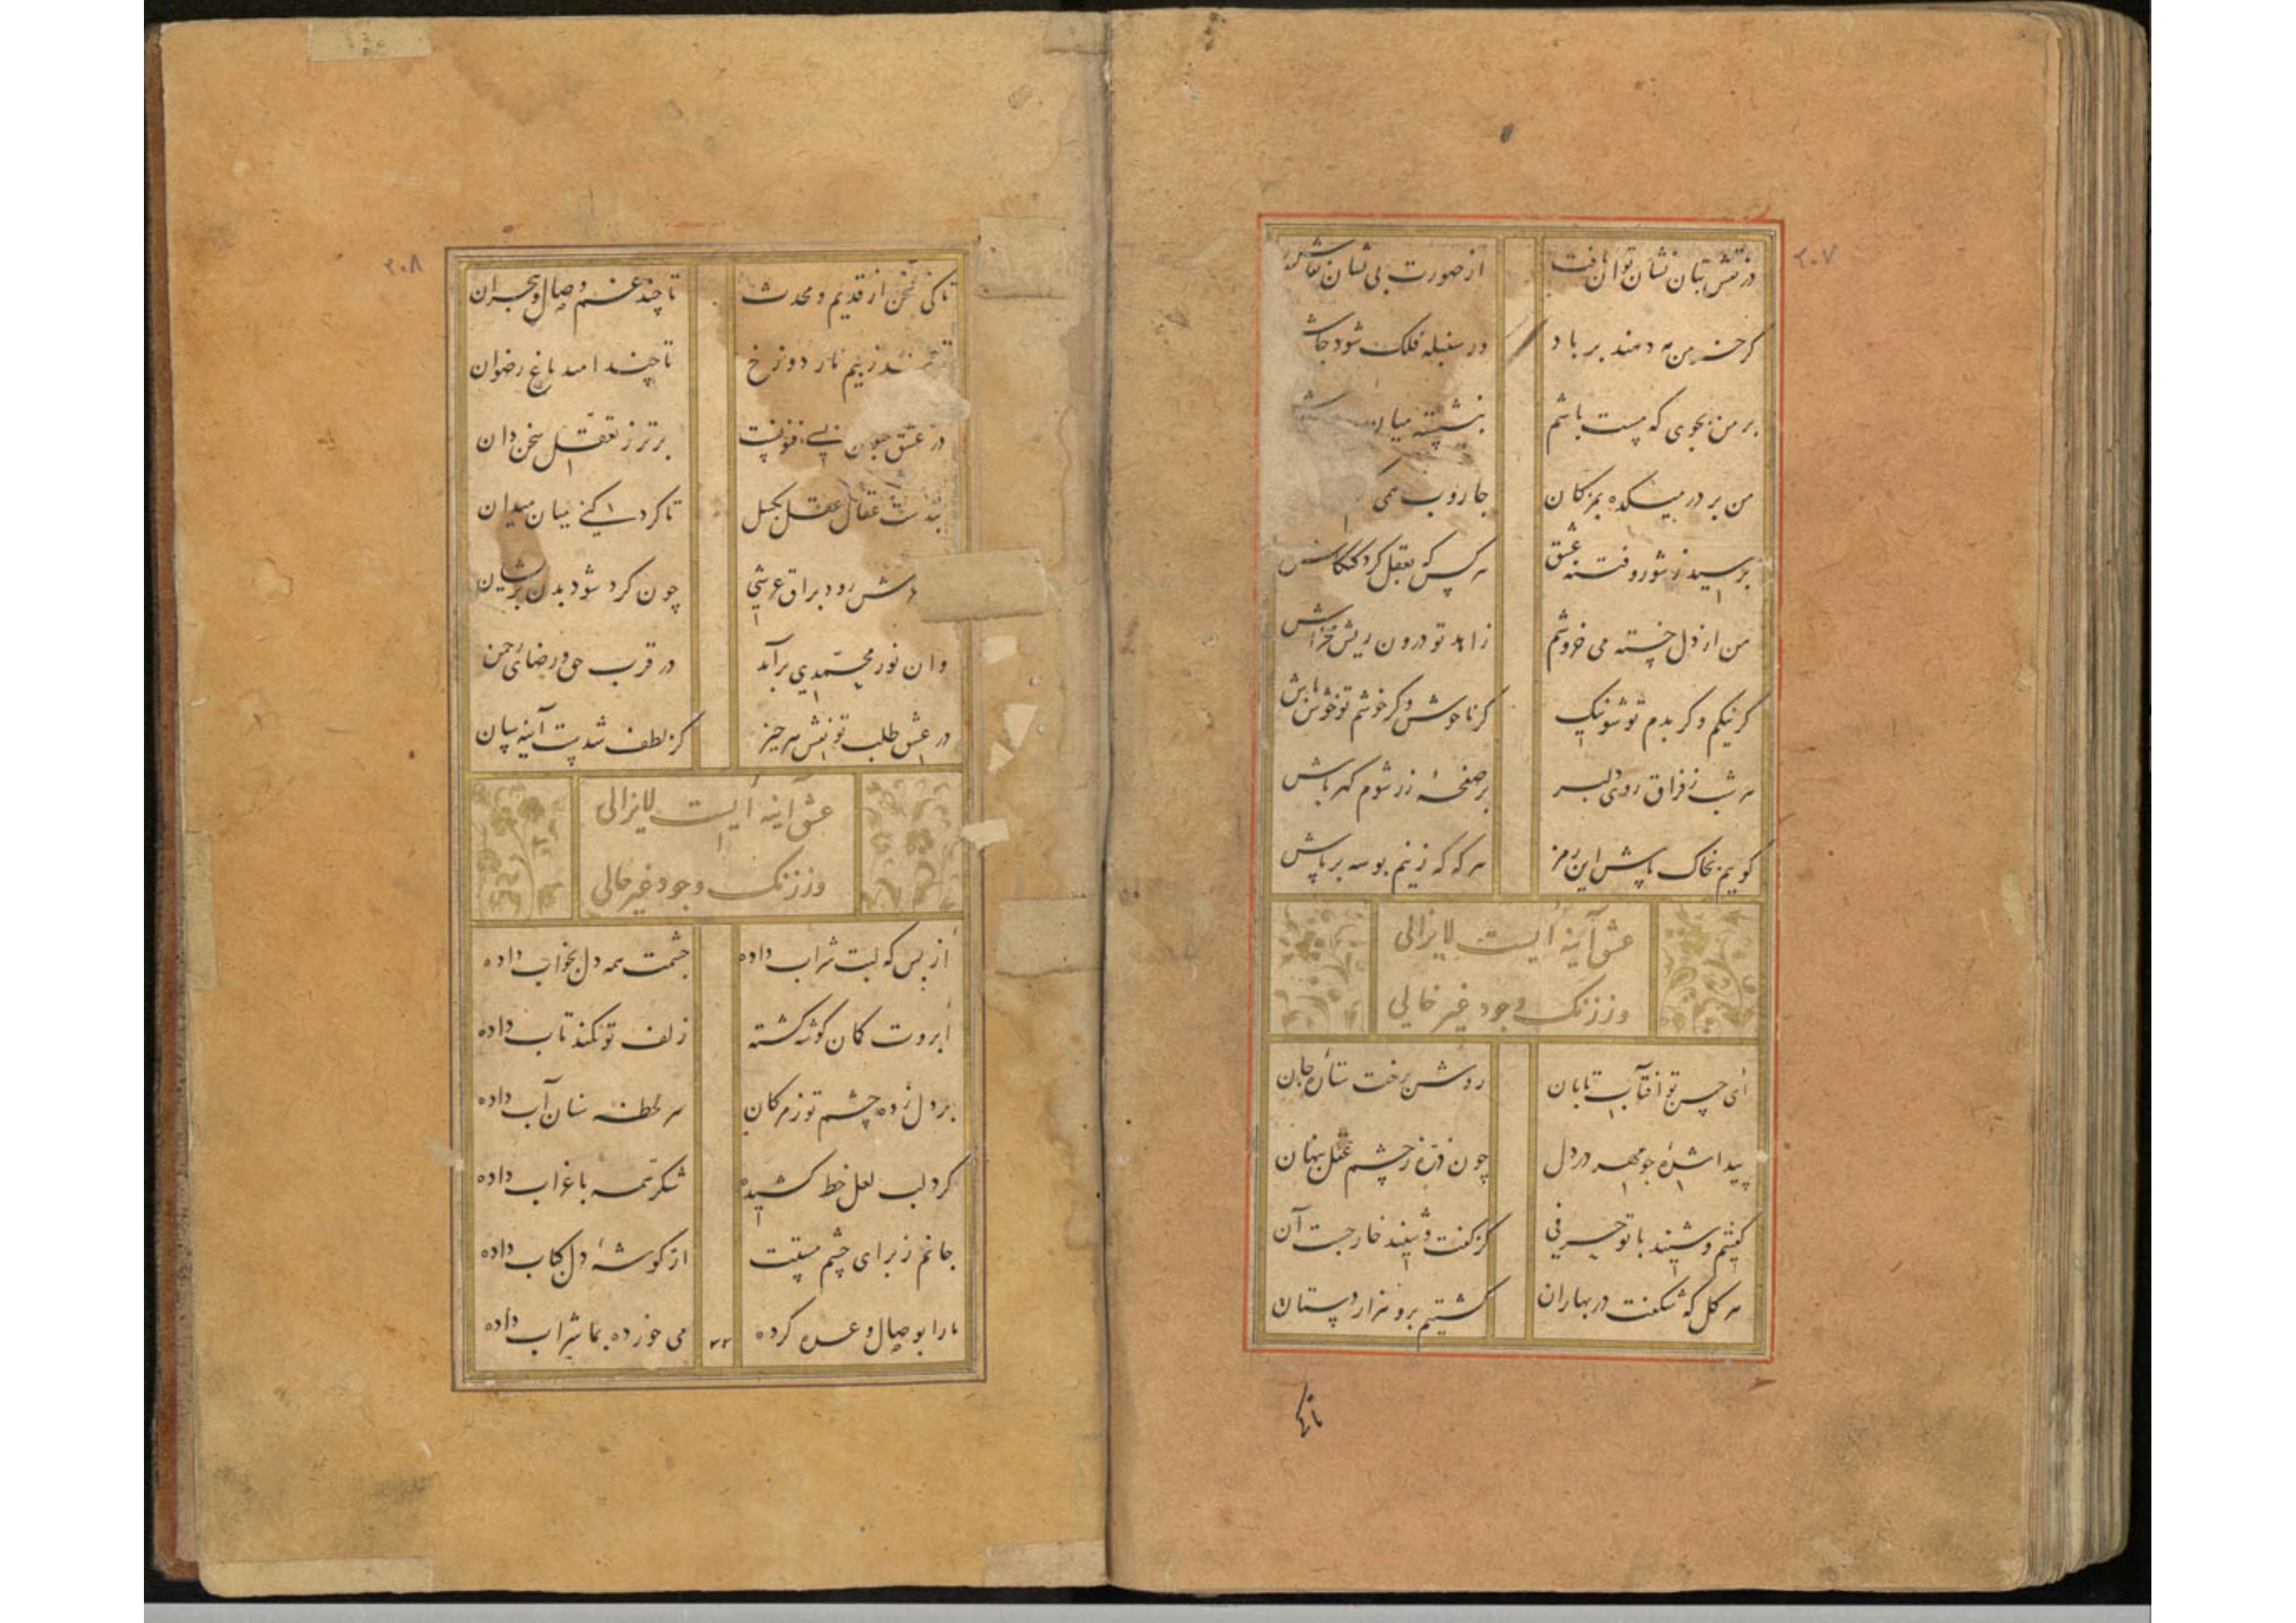 ۲۰۷
در نقش بتان نشان توان یافت از صورت بی نشان
کر خرمن مه دهند بر باد در سنبله فلک شود جاش
بر من بجوی که مست باشم بنشسته میان
من بر در میکده بمژکان جاروب همی
پرسید ز شور و فتنه عشق هر کس که بعقل کرد
من از دل خسته می خروشم زاهد تو درون ریش مخراش
کر نیکم و کر بدم تو شو نیک کر ناخوش و کر خوشم تو خوش باش
هر شب ز فراق روی دلبر بر صفحهٔ زر شوم کهر پاش
کویم بخاک پاش این رمز هر که که زنم بوسه بر پاش
عشق آینه ایست لایزالی
وز زنک وجود غیر خالی
ای حسن تو آفتاب تابان روشن برخت ستاره جان
پیدا شده چو مهر در دل چون ذره ز چشم عقل پنهان
کفتیم و شنید با تو حرفی کز کفت و شنید خارجست آن
هر کل که شکفت در بهاران کشتیم برو هزار دستان
تا کی
۲۰۸
تا کی سخن از قدیم و محدث تا چند غم وصال و هجران
ز بیم نار دوزخ تا چند امید باغ رضوان
در عشق جنون فنونیست برتر ز تعقل سخن دان
عقال عقل بکسل تا کرد کنی میان میدان
رود براق عرشی چون کرد شود بدن پریشان
وان نور محمدی برآید در قرب حق و رضای رحمن
در عشق طلب تو نقش هر چیز کز لطف شدست آینه سان
عشق آینه ایست لایزالی
وز زنک وجود غیر خالی
از بس که لبت شراب داده چشمت همه دل بخواب داده
ابروت کمان کوشه کشته زلف تو کمند تاب داده
بر دل زده چشم تو ز مژکان هر لحظه سنان آب داده
کرد لب لعل خط کشیده شکر همه با غراب داده
جانم ز برای چشم مستت از کوشهٔ دل کباب داده
ما را بوصال وعده کرده می خورده بما شراب داده